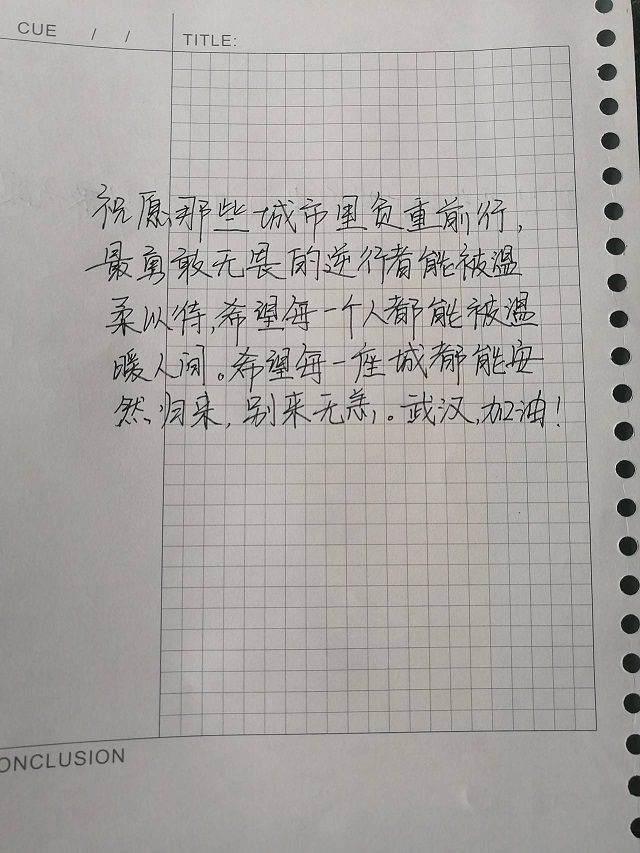 CUE / /
TITLE:
祝愿那些城市里负重前行,
最勇敢无畏的逆行者能被温
柔以待,希望每一个人都能被温
暖人间。希望每一座城都能安
然归来,别来无恙。武汉,加油!
ONCLUSION